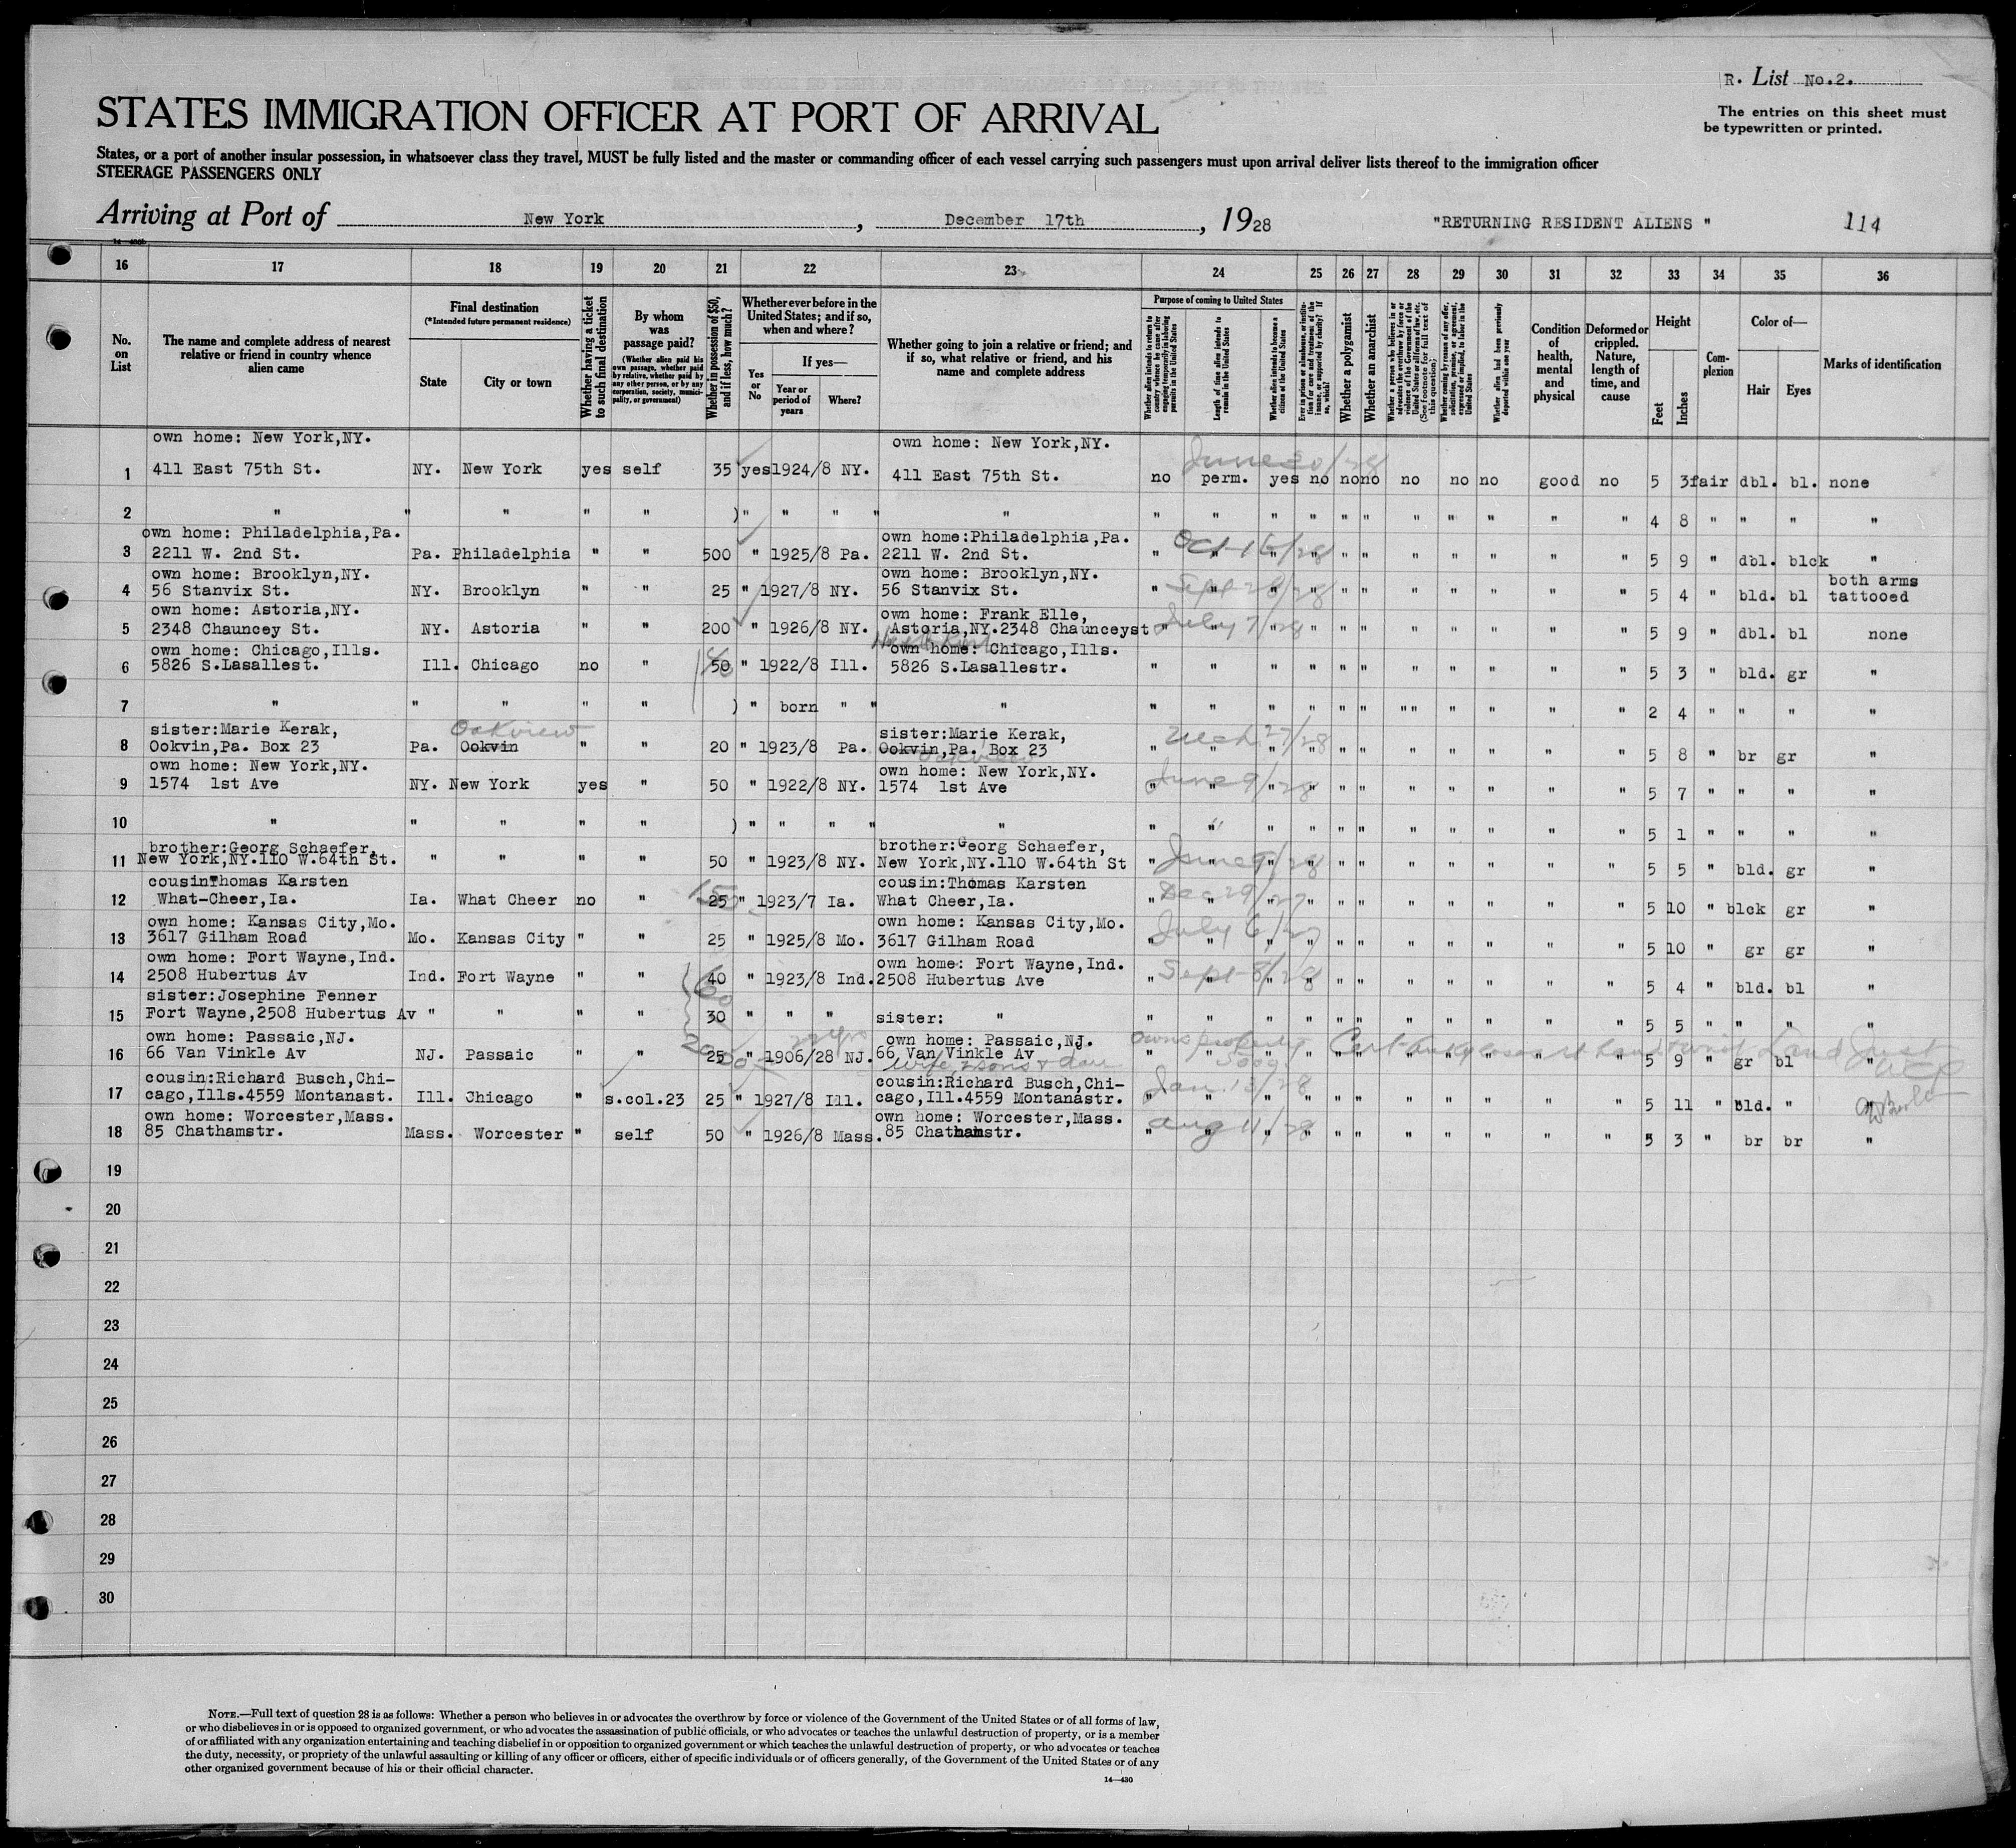 R. List No.2.
The entries on this sheet must
be typewritten or printed.
STATES IMMIGRATION OFFICER AT PORT OF ARRIVAL
States, or a port of another insular possession, in whatsoever class they travel, MUST be fully listed and the master or commanding officer of each vessel carrying such passengers must upon arrival deliver lists thereof to the immigration officer
STEERAGE PASSENGERS ONLY
Arriving at Port of New York, December 17th, 1928 "RETURNING RESIDENT ALIENS " 114
16 17 18 19 20 21 22 23 24 25 26 27 28 29 30 31 32 33 34 35 36
No. on List
The name and complete address of nearest relative or friend in country whence alien came
Final destination
(*Intended future permanent residence)
State
City or town
Whether having a ticket to such final destination
By whom was passage paid?
(Whether alien paid his own passage, whether paid by relative, whether paid by any other person, or by any corporation, society, municipality, or government)
Whether in possession of $50, and if less, how much?
Whether ever before in the United States; and if so, when and where?
Yes or No
If yes—
Year or period of years
Where?
Whether going to join a relative or friend; and if so, what relative or friend, and his name and complete address
Purpose of coming to United States
Whether alien intends to return to country whence he came after engaging temporarily in laboring pursuits in the United States
Length of time alien intends to remain in the United States
Whether alien intends to become a citizen of the United States
Ever in prison or almshouse, or institution for care and treatment of the insane, or supported by charity? If so, which?
Whether a polygamist
Whether an anarchist
Whether a person who believes in or advocates the overthrow by force or violence of the Government of the United States or all forms of law, etc. (See footnote for full text of this question)
Whether coming by reason of any offer, solicitation, promise, or agreement, expressed or implied, to labor in the United States
Whether alien had been previously deported within one year
Condition of health, mental and physical
Deformed or crippled. Nature, length of time, and cause
Height
Feet
Inches
Complexion
Color of—
Hair
Eyes
Marks of identification
own home: New York,NY. own home: New York,NY. June 20/28
1 411 East 75th St. NY. New York yes self 35 yes 1924/8 NY. 411 East 75th St. no perm. yes no no no no no no good no 5 3 fair dbl. bl. none
2 " " " " " ) " " " " " " " " " " " " " " " " 4 8 " " " "
own home: Philadelphia,Pa. own home:Philadelphia,Pa. Oct 16/28
3 2211 W. 2nd St. Pa. Philadelphia " " 500 " 1925/8 Pa. 2211 W. 2nd St. " " " " " " " " " " " 5 9 " dbl. blck "
own home: Brooklyn,NY. own home: Brooklyn,NY. both arms
4 56 Stanvix St. NY. Brooklyn " " 25 " 1927/8 NY. 56 Stanvix St. " Sept 28/28 " " " " " " " " " 5 4 " bld. bl tattooed
own home: Astoria,NY. own home: Frank Elle,
5 2348 Chauncey St. NY. Astoria " " 200 " 1926/8 NY. Astoria,NY.2348 Chaunceyst " July 7/28 " " " " " " " " " 5 9 " dbl. bl none
own home: Chicago,Ills. own home: Chicago,Ills.
6 5826 S.Lasallest. Ill. Chicago no " 50 " 1922/8 Ill. 5826 S.Lasallestr. " " " " " " " " " " " 5 3 " bld. gr "
7 " " " " " ) " born " " " " " " " " " " " " " " " 2 4 " " " "
sister:Marie Kerak, Oakview sister:Marie Kerak,
8 Ookvin,Pa. Box 23 Pa. Ookvin " " 20 " 1923/8 Pa. Ookvin,Pa. Box 23 " Mch 27/28 " " " " " " " " " 5 8 " br gr "
own home: New York,NY. own home: New York,NY.
9 1574 1st Ave NY. New York yes " 50 " 1922/8 NY. 1574 1st Ave " June 9/28 " " " " " " " " " 5 7 " " " "
10 " " " " " ) " " " " " " " " " " " " " " " " 5 1 " " " "
brother:Georg Schaefer, brother:Georg Schaefer,
11 New York,NY.110 W.64th St. " " " " 50 " 1923/8 NY. New York,NY.110 W.64th St " June 9/28 " " " " " " " " " 5 5 " bld. gr "
cousin Thomas Karsten cousin:Thomas Karsten
12 What-Cheer,Ia. Ia. What Cheer no " 150 25 " 1923/7 Ia. What Cheer,Ia. " Dec 29/27 " " " " " " " " " 5 10 " blck gr "
own home: Kansas City,Mo. own home: Kansas City,Mo.
13 3617 Gilham Road Mo. Kansas City " " 25 " 1925/8 Mo. 3617 Gilham Road " July 6/27 " " " " " " " " " 5 10 " gr gr "
own home: Fort Wayne,Ind. own home: Fort Wayne,Ind.
14 2508 Hubertus Av Ind. Fort Wayne " " 40 " 1923/8 Ind. 2508 Hubertus Ave " Sept 8/28 " " " " " " " " " 5 4 " bld. bl "
sister:Josephine Fenner
15 Fort Wayne,2508 Hubertus Av " " " " 30 " " " sister: " " " " " " " " " " " " " 5 5 " " " "
own home: Passaic,NJ. own home: Passaic,NJ. owns property
16 66 Van Vinkle Av NJ. Passaic " " 25 " 1906/28 NJ. 66 Van Vinkle Av " " " " " " " " " " " 5 9 " gr bl "
wife, 2 sons & dau 5000
cousin:Richard Busch,Chi- cousin:Richard Busch,Chi-
17 cago,Ills.4559 Montanast. Ill. Chicago " s.col.23 25 " 1927/8 Ill. cago,Ill.4559 Montanastr. " Jan. 13/28 " " " " " " " " " 5 11 " bld. " "
own home: Worcester,Mass. own home: Worcester,Mass.
18 85 Chathamstr. Mass. Worcester " self 50 " 1926/8 Mass. 85 Chathamstr. " Aug 11/28 " " " " " " " " " 5 3 " br br "
19
20
21
22
23
24
25
26
27
28
29
30
NOTE.—Full text of question 28 is as follows: Whether a person who believes in or advocates the overthrow by force or violence of the Government of the United States or of all forms of law,
or who disbelieves in or is opposed to organized government, or who advocates the assassination of public officials, or who advocates or teaches the unlawful destruction of property, or is a member
of or affiliated with any organization entertaining and teaching disbelief in or opposition to organized government or which teaches the unlawful destruction of property, or who advocates or teaches
the duty, necessity, or propriety of the unlawful assaulting or killing of any officer or officers, either of specific individuals or of officers generally, of the Government of the United States or of any
other organized government because of his or their official character.
14—430